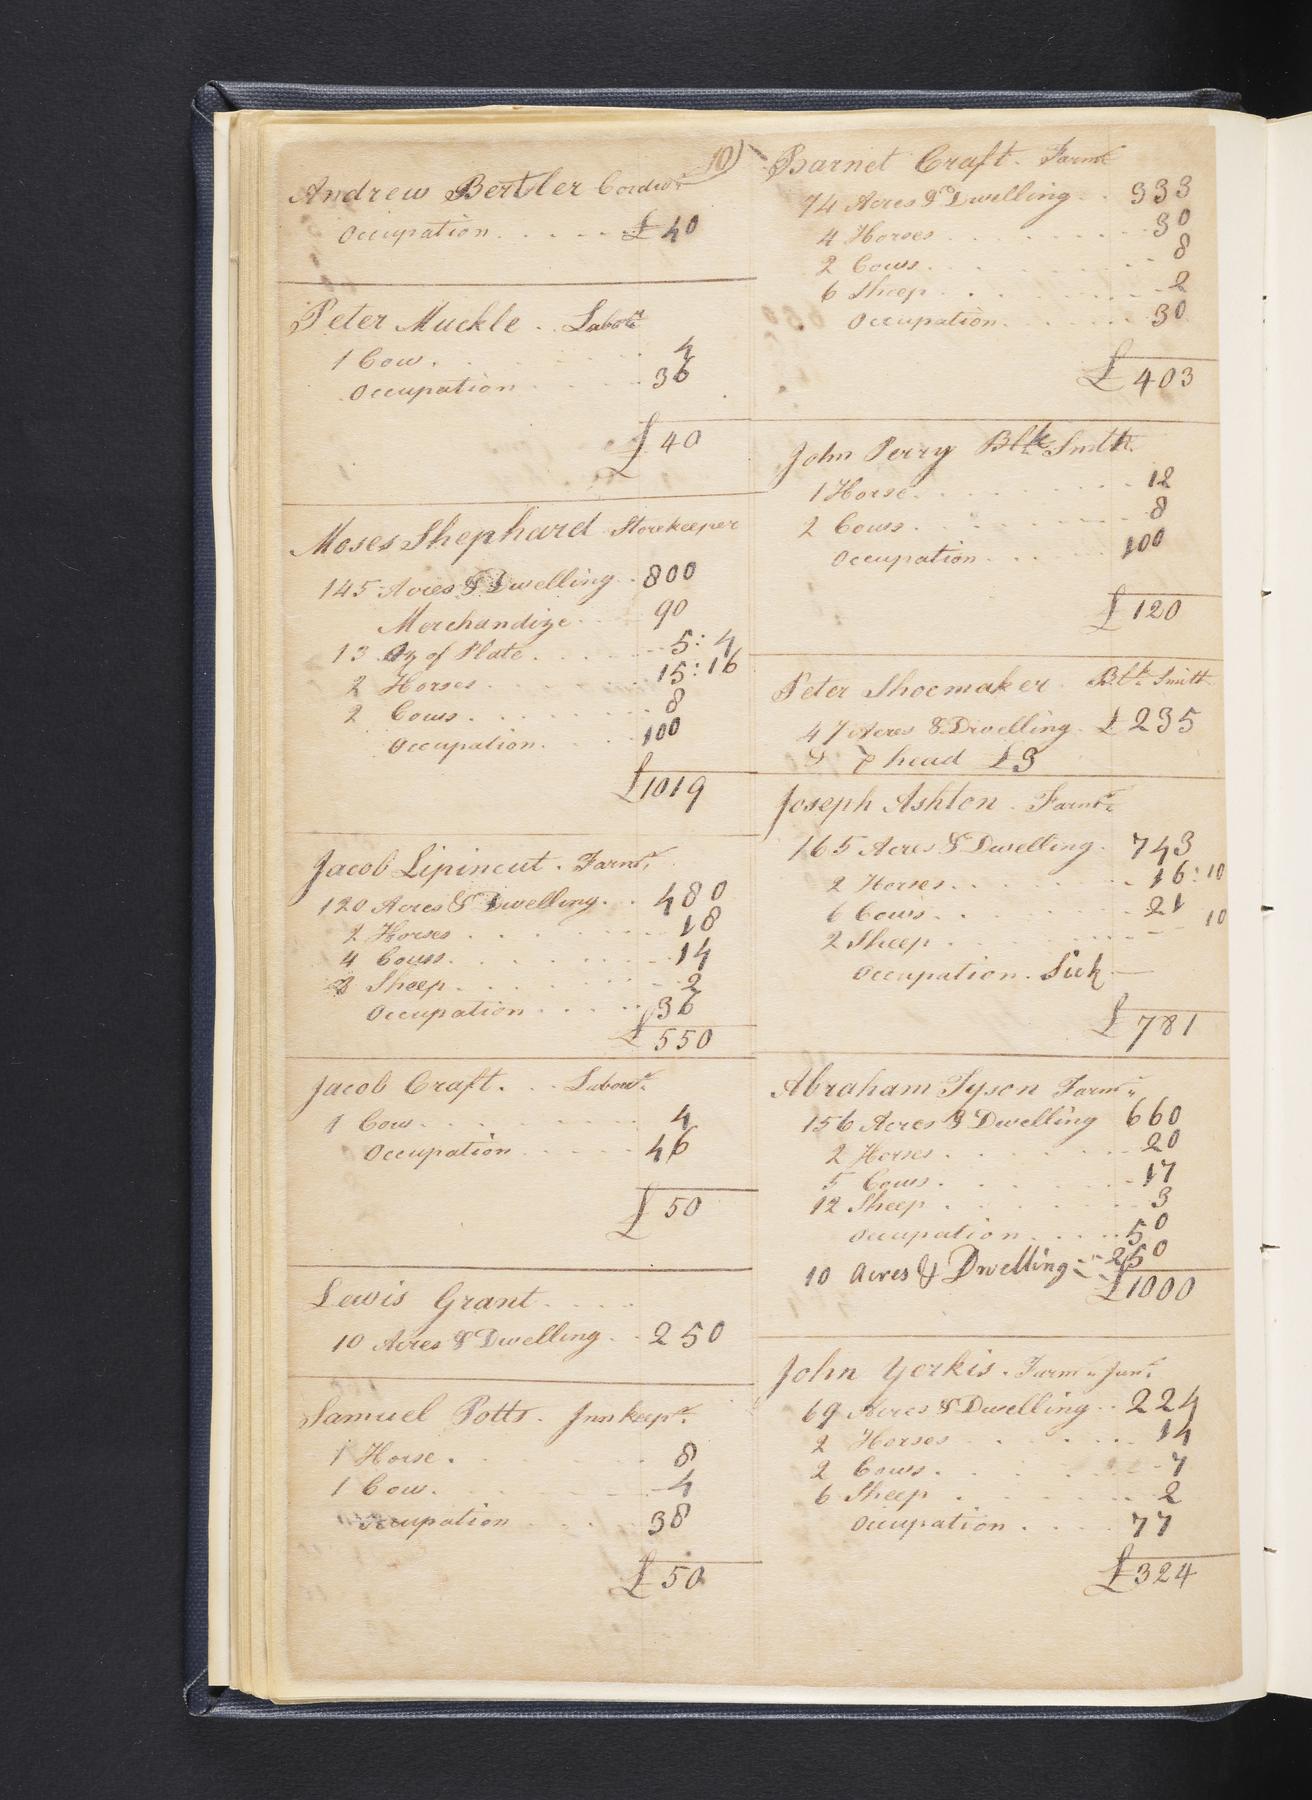 10)
Andrew Bertsler Cordwr
Occupation . . . . . £ 40
Peter Muckle . . Labour
1 Cow . 4
Occupation . . . . 36
£ 40
Moses Shephard Storekeeper
145 Acres & Dwelling . . 800
Merchandize . . . 90
13 Oz of Plate . . . . . 5: 4
2 Horses . . . . . 15:16
2 Cows . . . . . . . 8
Occupation . . . . 100
£1019
Jacob Lipincut . Farmr
120 Acres & Dwelling . . . 480
2 Horses . . . . . . 18
4 Cows . . . . . . . 14
8 Sheep . . . . . . . 2
Occupation . . . . . 36
£ 550
Jacob Craft . . . Labour
1 Cow . . . . . . . . 4
Occupation . . . . . 46
£ 50
Lewis Grant . . . .
10 Acres & Dwelling . . 250
Samuel Potts . Innkeepr
1 Horse . 8
1 Cow . . . . . . . . 4
Occupation . . . . 38
£ 50
Barnet Craft . Farmr
74 Acres & Dwelling . . 333
4 Horses . . . . . . . . 30
2 Cows . . . . . . . . . 8
6 Sheep . . . . . . . . 2
Occupation . . . . . . 30
£ 403
John Perry Blk Smith
1 Horse . . . . . . . . 12
2 Cows . . . . . . . . . 8
Occupation . . . . 100
£ 120
Peter Shoemaker . Blk Smith
47 Acres & Dwelling . £ 235
& head £3
Joseph Ashton . Farmr
165 Acres & Dwelling . 743
2 Horses . . . . . . . 16:10
6 Cows . . . . . . . . 21
2 Sheep . . . . . . . -- 10
Occupation . Sick —
£ 781
Abraham Tyson Farmr
156 Acres & Dwelling 660
2 Horses . . . . . . . 20
5 Cows . . . . . . . . 17
12 Sheep . . . . . . . 3
Occupation . . . . . 50
10 Acres & Dwelling . . 250
£1000
John Yerkis . Farmr Junr
69 Acres & Dwelling . . 224
2 Horses . . . . . . 14
2 Cows . . . . . . . . 7
6 Sheep . . . . . . . 2
Occupation . . . . . 77
£324